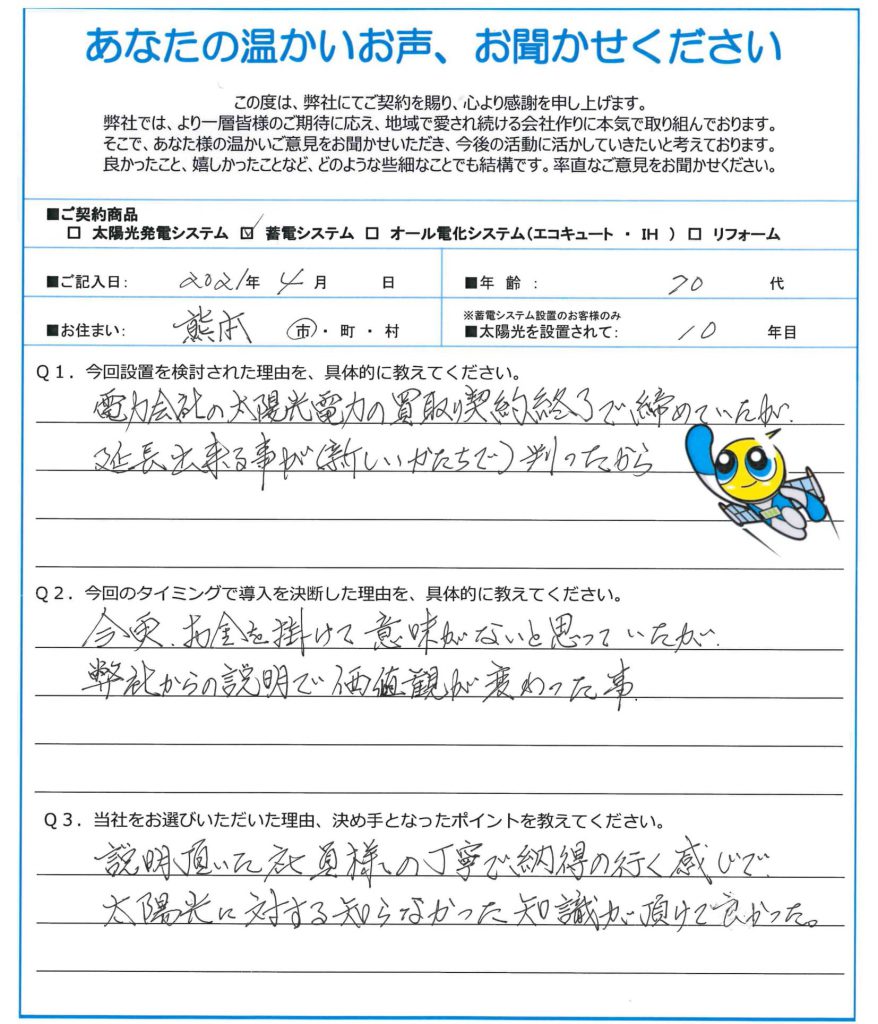 あなたの温かいお声、お聞かせください
この度は、弊社にてご契約を賜り、心より感謝を申し上げます。
弊社では、より一層皆様のご期待に応え、地域で愛され続ける会社作りに本気で取り組んでおります。
そこで、あなた様の温かいご意見をお聞かせいただき、今後の活動に活かしていきたいと考えております。
良かったこと、嬉しかったことなど、どのような些細なことでも結構です。率直なご意見をお聞かせください。
■ご契約商品
□ 太陽光発電システム ☑ 蓄電システム □ オール電化システム(エコキュート ・ IH ) □ リフォーム
■ご記入日: 2021年 4月 日 ■年 齢 : 70 代
※蓄電システム設置のお客様のみ
■お住まい: 熊本 市・町・村 ■太陽光を設置されて: 10 年目
Q1. 今回設置を検討された理由を、具体的に教えてください。
電力会社の太陽光電力の買取り契約終了で締めていたが、
延長出来る事が(新しいかたちで)判ったから
Q2. 今回のタイミングで導入を決断した理由を、具体的に教えてください。
今更、お金を掛けて意味がないと思っていたが、
弊社からの説明で価値観が変わった事
Q3. 当社をお選びいただいた理由、決め手となったポイントを教えてください。
説明頂いた社員様の丁寧で納得の行く感じで
太陽光に対する知らなかった知識が頂けて良かった。